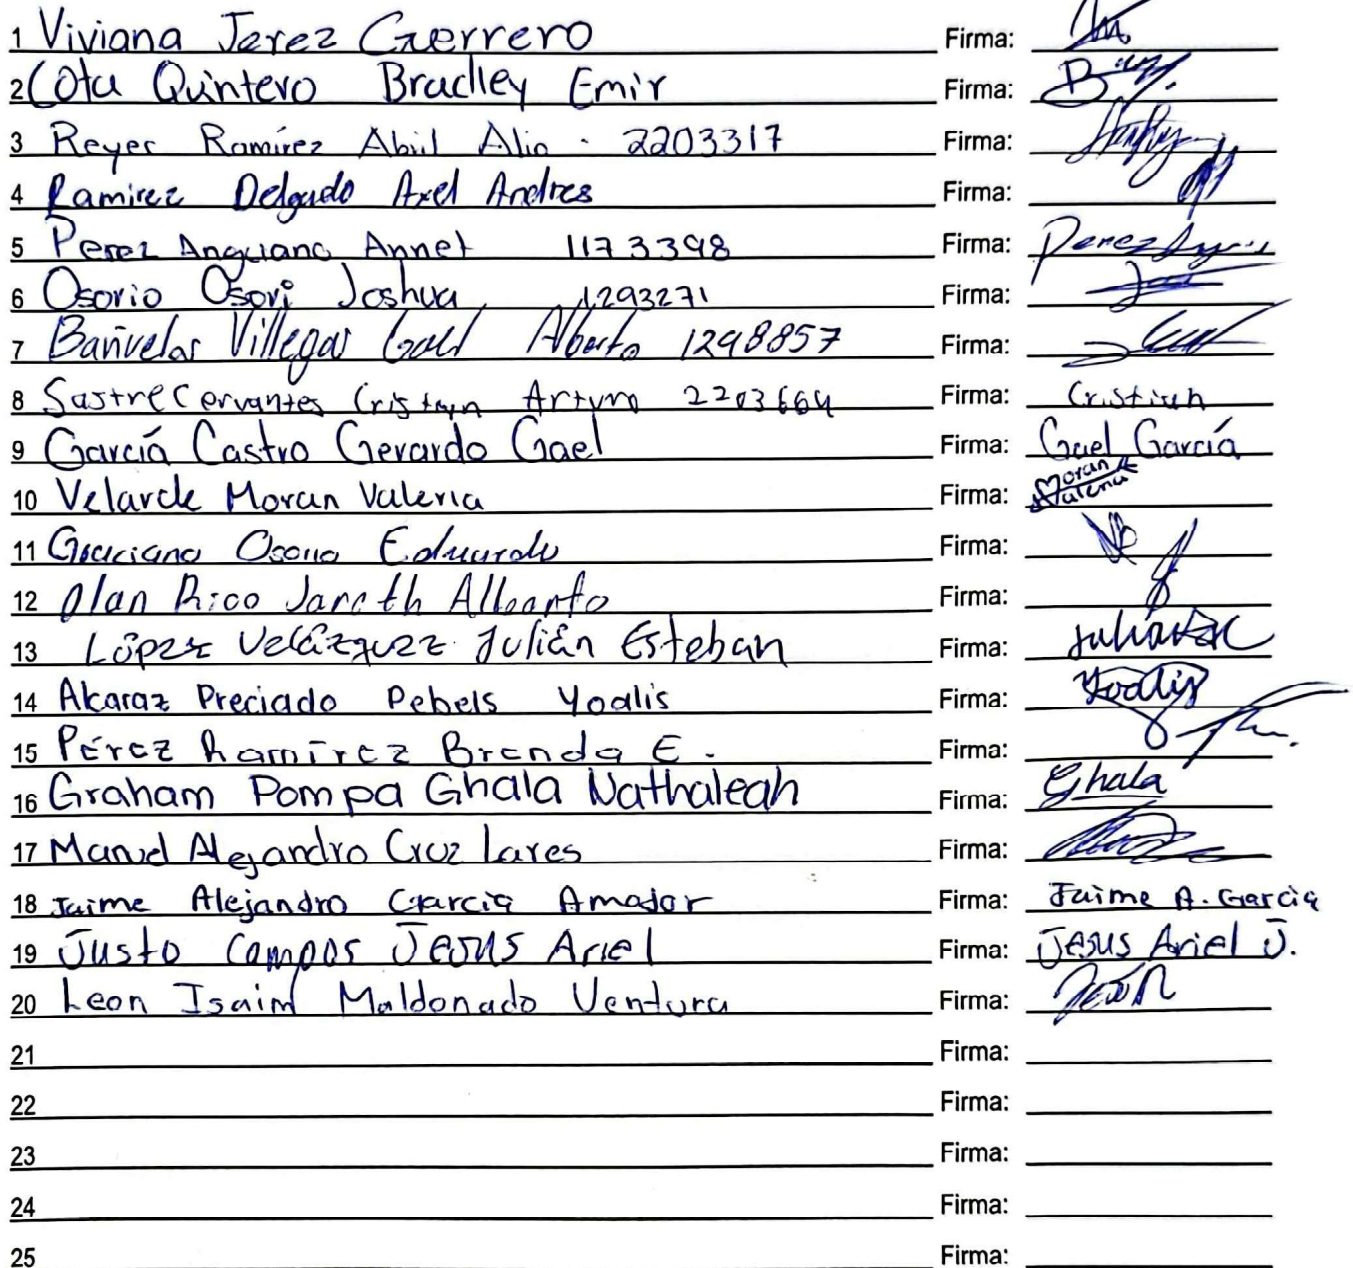 1 Viviana Jerez Guerrero Firma:
2 Cota Quintero Bradley Emir Firma:
3 Reyes Ramírez Abiil Alin 2203317 Firma:
4 Ramirez Delgado Axel Andres Firma:
5 Perez Anguiano Annet 1173398 Firma: Perez
6 Osorio Osori Joshua 1293271 Firma:
7 Bañuelos Villegas Gael Alberto 1298857 Firma:
8 Sastre Cervantes Cristian Arturo 2203664 Firma: Cristian
9 García Castro Gerardo Gael Firma: Gael García
10 Velarde Moran Valeria Firma: Moran Valeria
11 Graciano Osorio Eduardo Firma:
12 Olan Rico Jareth Alberto Firma:
13 López Velázquez Julián Esteban Firma:
14 Alcaraz Preciado Pebels Yoalis Firma: Yoalis
15 Pérez Ramírez Brenda E. Firma:
16 Graham Pompa Ghala Nathaleah Firma: Ghala
17 Manuel Alejandro Cruz Lares Firma:
18 Jaime Alejandro Garcia Amador Firma: Jaime A. Garcia
19 Justo Campos Jesus Ariel Firma: Jesus Ariel J.
20 Leon Isaim Maldonado Ventura Firma:
21 Firma:
22 Firma:
23 Firma:
24 Firma:
25 Firma: